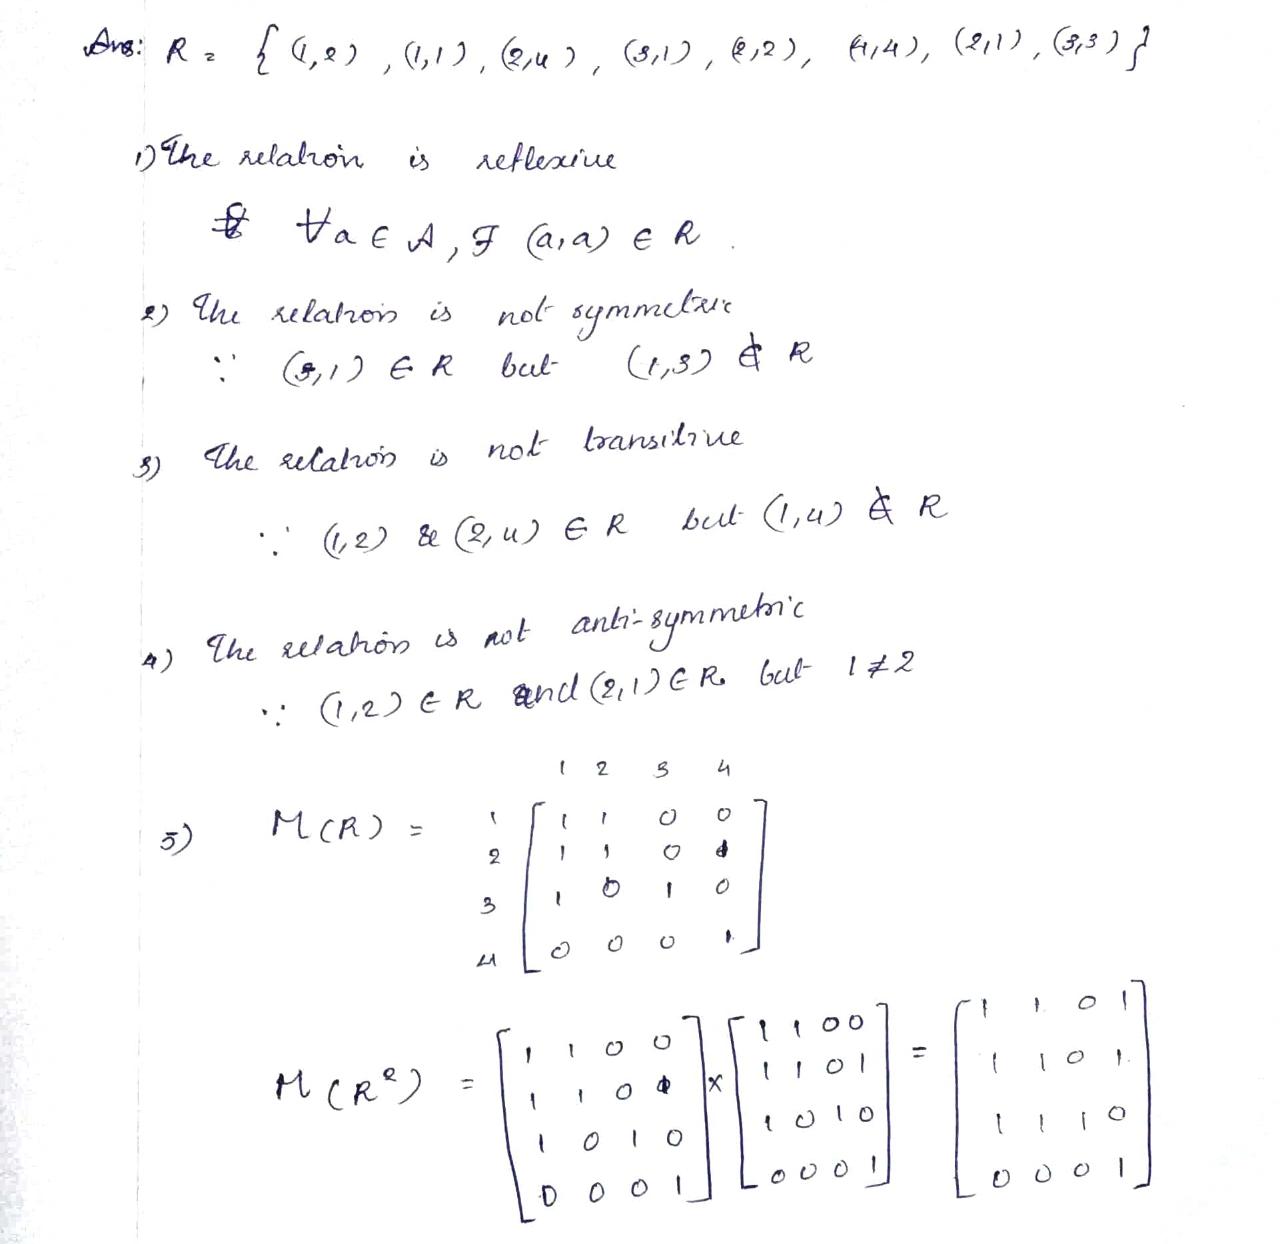 Ans: R = { (1,2) , (1,1) , (2,4) , (3,1) , (2,2) , (4,4) , (2,1) , (3,3) }
1) The relation is reflexive
∀a ∈ A , ∃ (a,a) ∈ R .
2) The relation is not symmetric
∵ (3,1) ∈ R but (1,3) ∉ R
3) The relation is not transitive
∵ (1,2) & (2,4) ∈ R but (1,4) ∉ R
4) The relation is not anti-symmetric
∵ (1,2) ∈ R and (2,1) ∈ R. but 1 ≠ 2
1 2 3 4
5) M(R) =
1 [ 1 1 0 0 ]
2 [ 1 1 0 1 ]
3 [ 1 0 1 0 ]
4 [ 0 0 0 1 ]
M(R²) =
[ 1 1 0 0 ] [ 1 1 0 0 ] [ 1 1 0 1 ]
[ 1 1 0 1 ] x [ 1 1 0 1 ] = [ 1 1 0 1 ]
[ 1 0 1 0 ] [ 1 0 1 0 ] [ 1 1 1 0 ]
[ 0 0 0 1 ] [ 0 0 0 1 ] [ 0 0 0 1 ]